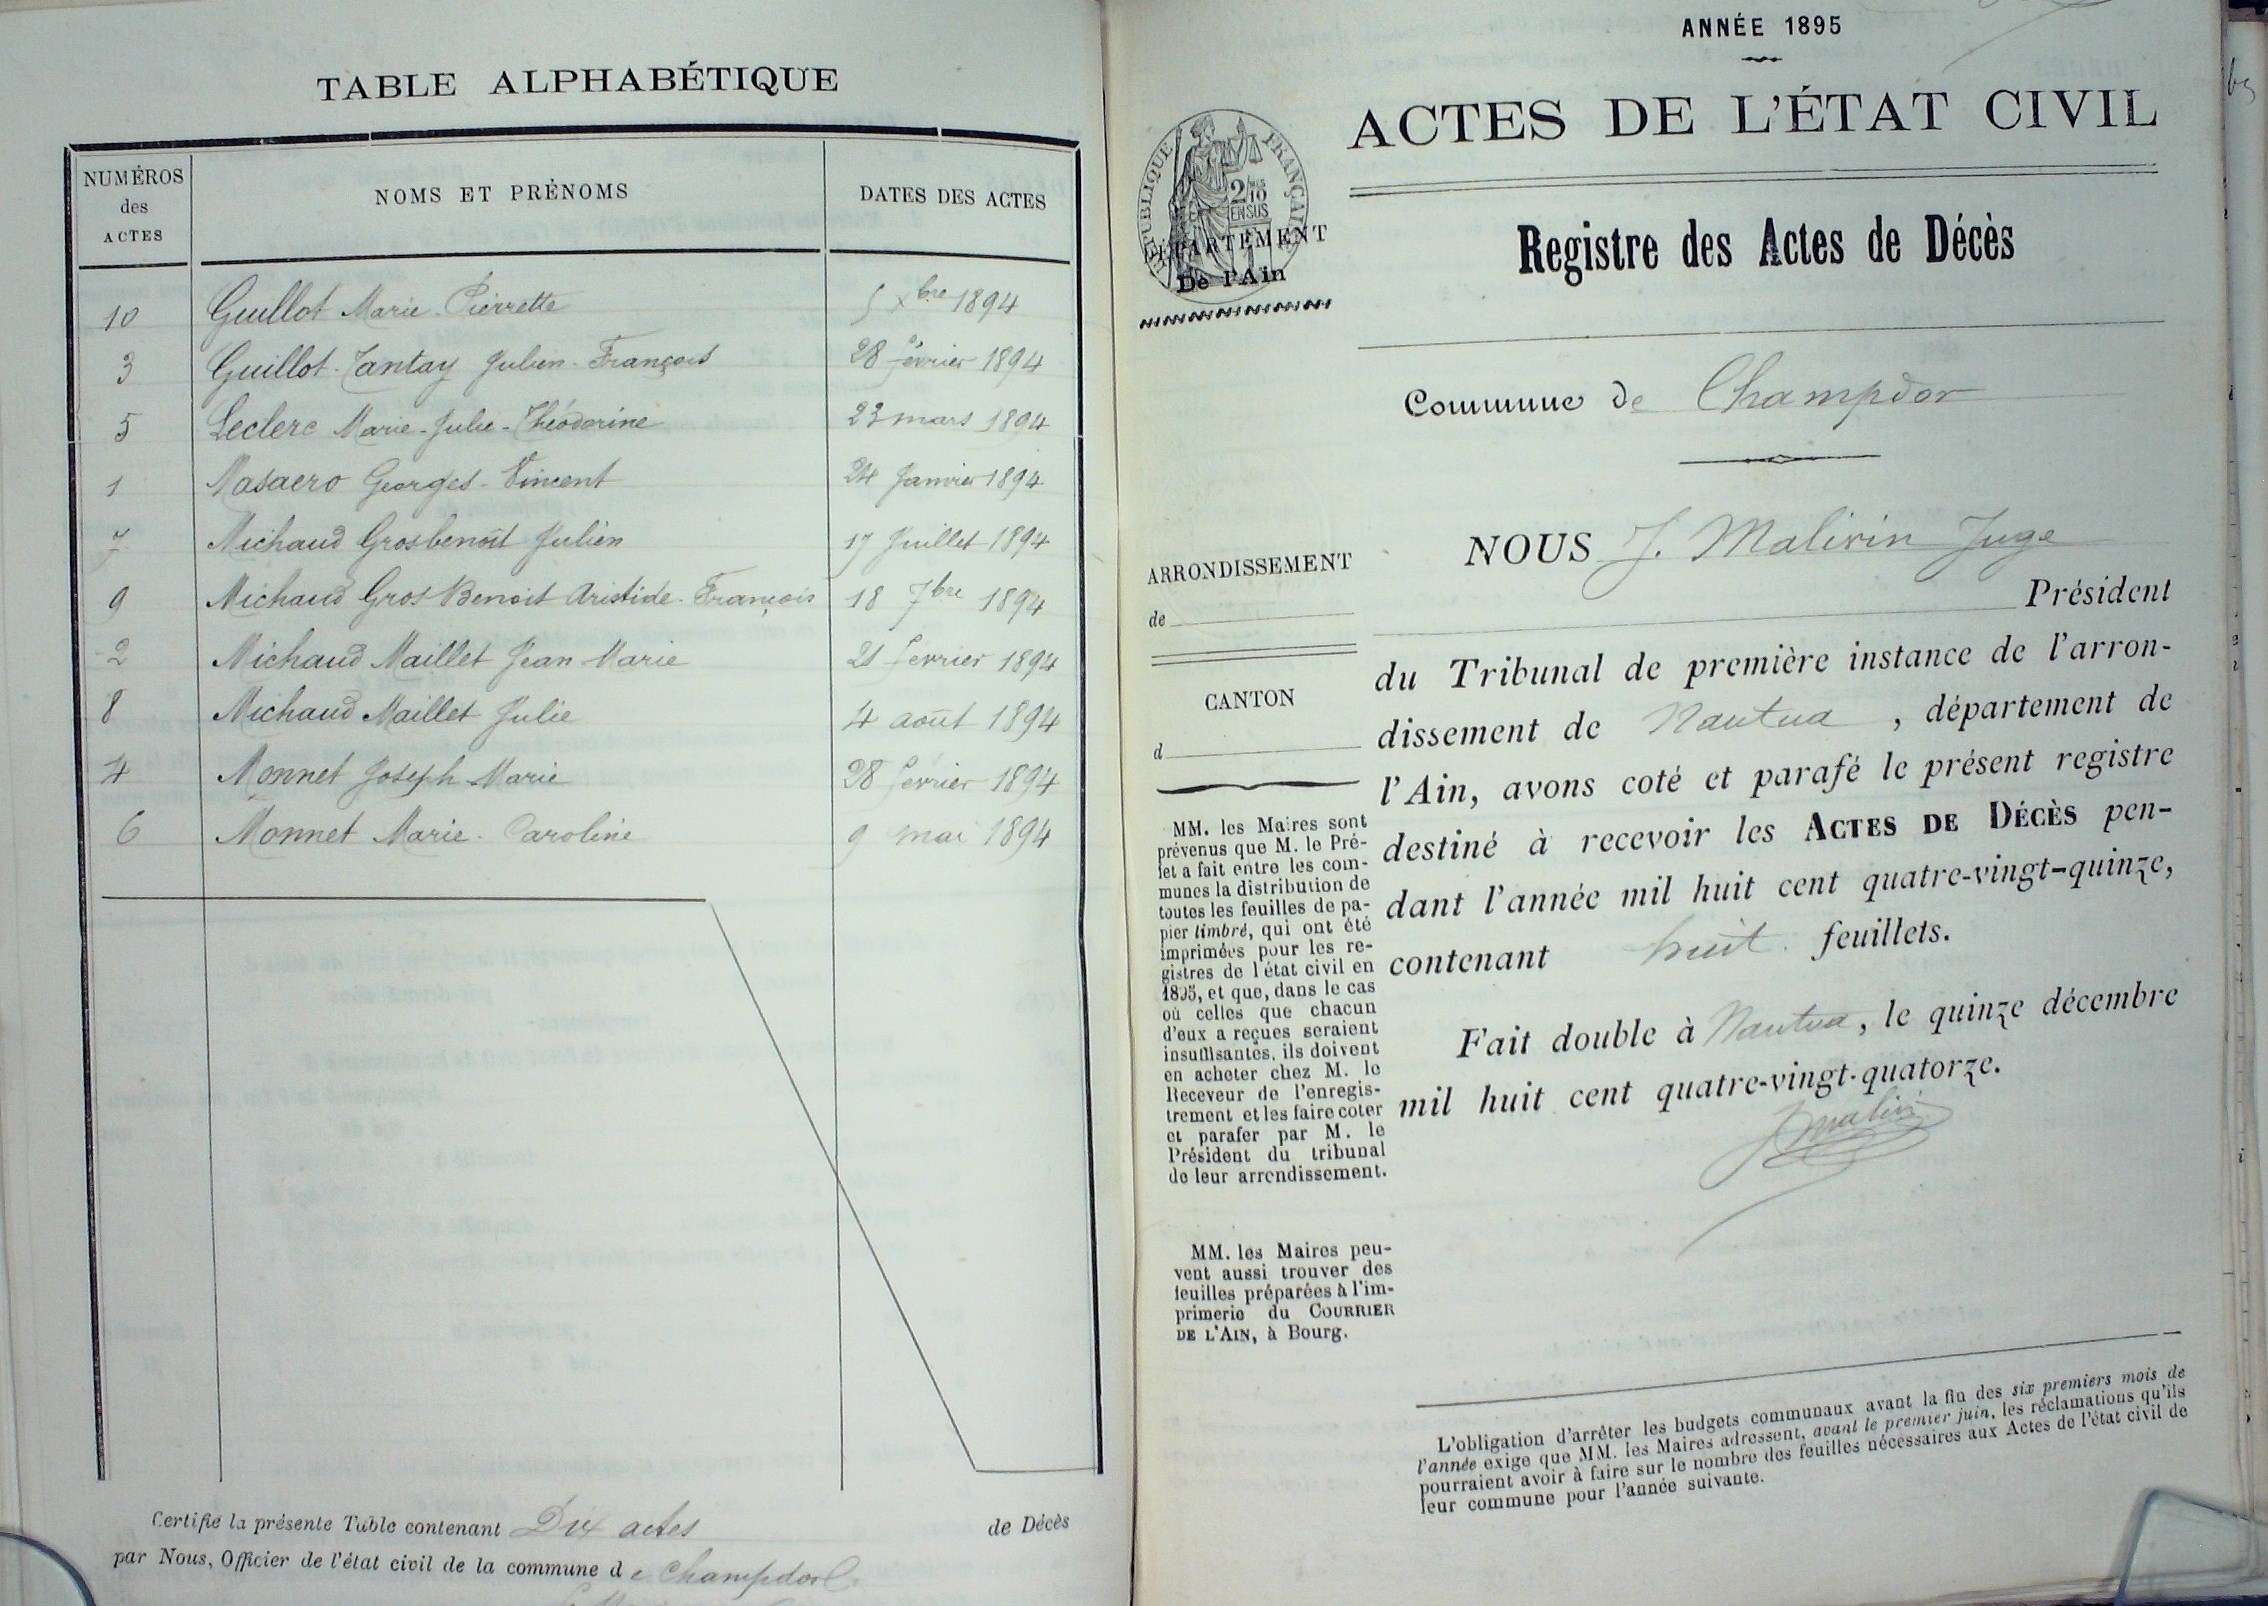 TABLE ALPHABÉTIQUE
NUMÉROS
des
ACTES
NOMS ET PRÉNOMS
DATES DES ACTES
10 Guillot Marie-Pierrette 5 Xbre 1894
3 Guillot-Tantay Julien-François 28 février 1894
5 Leclerc Marie-Julie-Théodorine 23 mars 1894
1 Masaero Georges-Vincent 24 Janvier 1894
7 Michaud Grosbenoit Julien 17 Juillet 1894
9 Michaud Gros Benoit Aristide-François 18 7bre 1894
2 Michaud Maillet Jean-Marie 21 février 1894
8 Michaud Maillet Julie 4 août 1894
4 Monnet Joseph-Marie 28 février 1894
6 Monnet Marie-Caroline 9 mai 1894
Certifié la présente Table contenant Dix actes de Décès
par Nous, Officier de l'état civil de la commune de Champdor
ANNÉE 1895
ACTES DE L'ÉTAT CIVIL
RÉPUBLIQUE FRANÇAISE
2/10
EN SUS
DÉPARTEMENT
De l'Ain
Registre des Actes de Décès
Commune de Champdor
ARRONDISSEMENT
de
CANTON
d
MM. les Maires sont
prévenus que M. le Pré-
fet a fait entre les com-
munes la distribution de
toutes les feuilles de pa-
pier timbré, qui ont été
imprimées pour les re-
gistres de l'état civil en
1895, et que, dans le cas
où celles que chacun
d'eux a reçues seraient
insuffisantes, ils doivent
en acheter chez M. le
Receveur de l'enregis-
trement et les faire coter
et parafer par M. le
Président du tribunal
de leur arrondissement.
MM. les Maires peu-
vent aussi trouver des
feuilles préparées à l'im-
primerie du COURRIER
DE L'AIN, à Bourg.
NOUS J. Malivin Juge
Président
du Tribunal de première instance de l'arron-
dissement de Nantua, département de
l'Ain, avons coté et parafé le présent registre
destiné à recevoir les ACTES DE DÉCÈS pen-
dant l'année mil huit cent quatre-vingt-quinze,
contenant huit feuillets.
Fait double à Nantua, le quinze décembre
mil huit cent quatre-vingt-quatorze.
L'obligation d'arrêter les budgets communaux avant la fin des six premiers mois de
l'année exige que MM. les Maires adressent, avant le premier juin, les réclamations qu'ils
pourraient avoir à faire sur le nombre des feuilles nécessaires aux Actes de l'état civil de
leur commune pour l'année suivante.